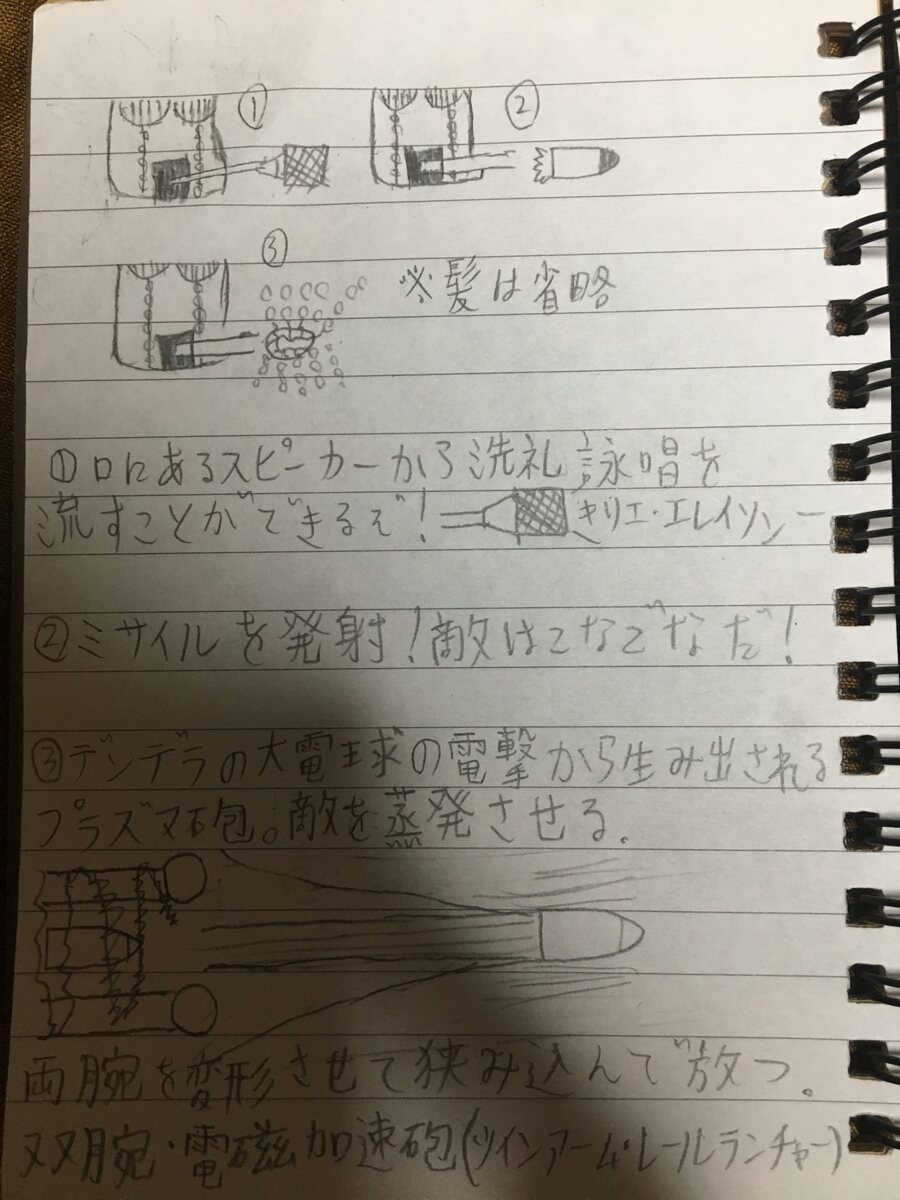 ① ②
③ ※髪は省略
①口にあるスピーカーから洗礼詠唱を
流すことができるぞ! キリエ・エレイソンー
②ミサイルを発射!敵はこなごなだ!
③デンデラの大電球の電撃から生み出される
プラズマ砲。敵を蒸発させる.
両腕を変形させて狭み込んで放つ.
双腕・電磁加速砲(ツインアーム・レールランチャー)